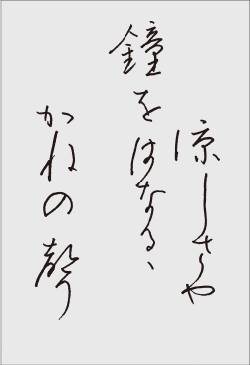 涼しさや
鐘をはなるゝ
かねの聲